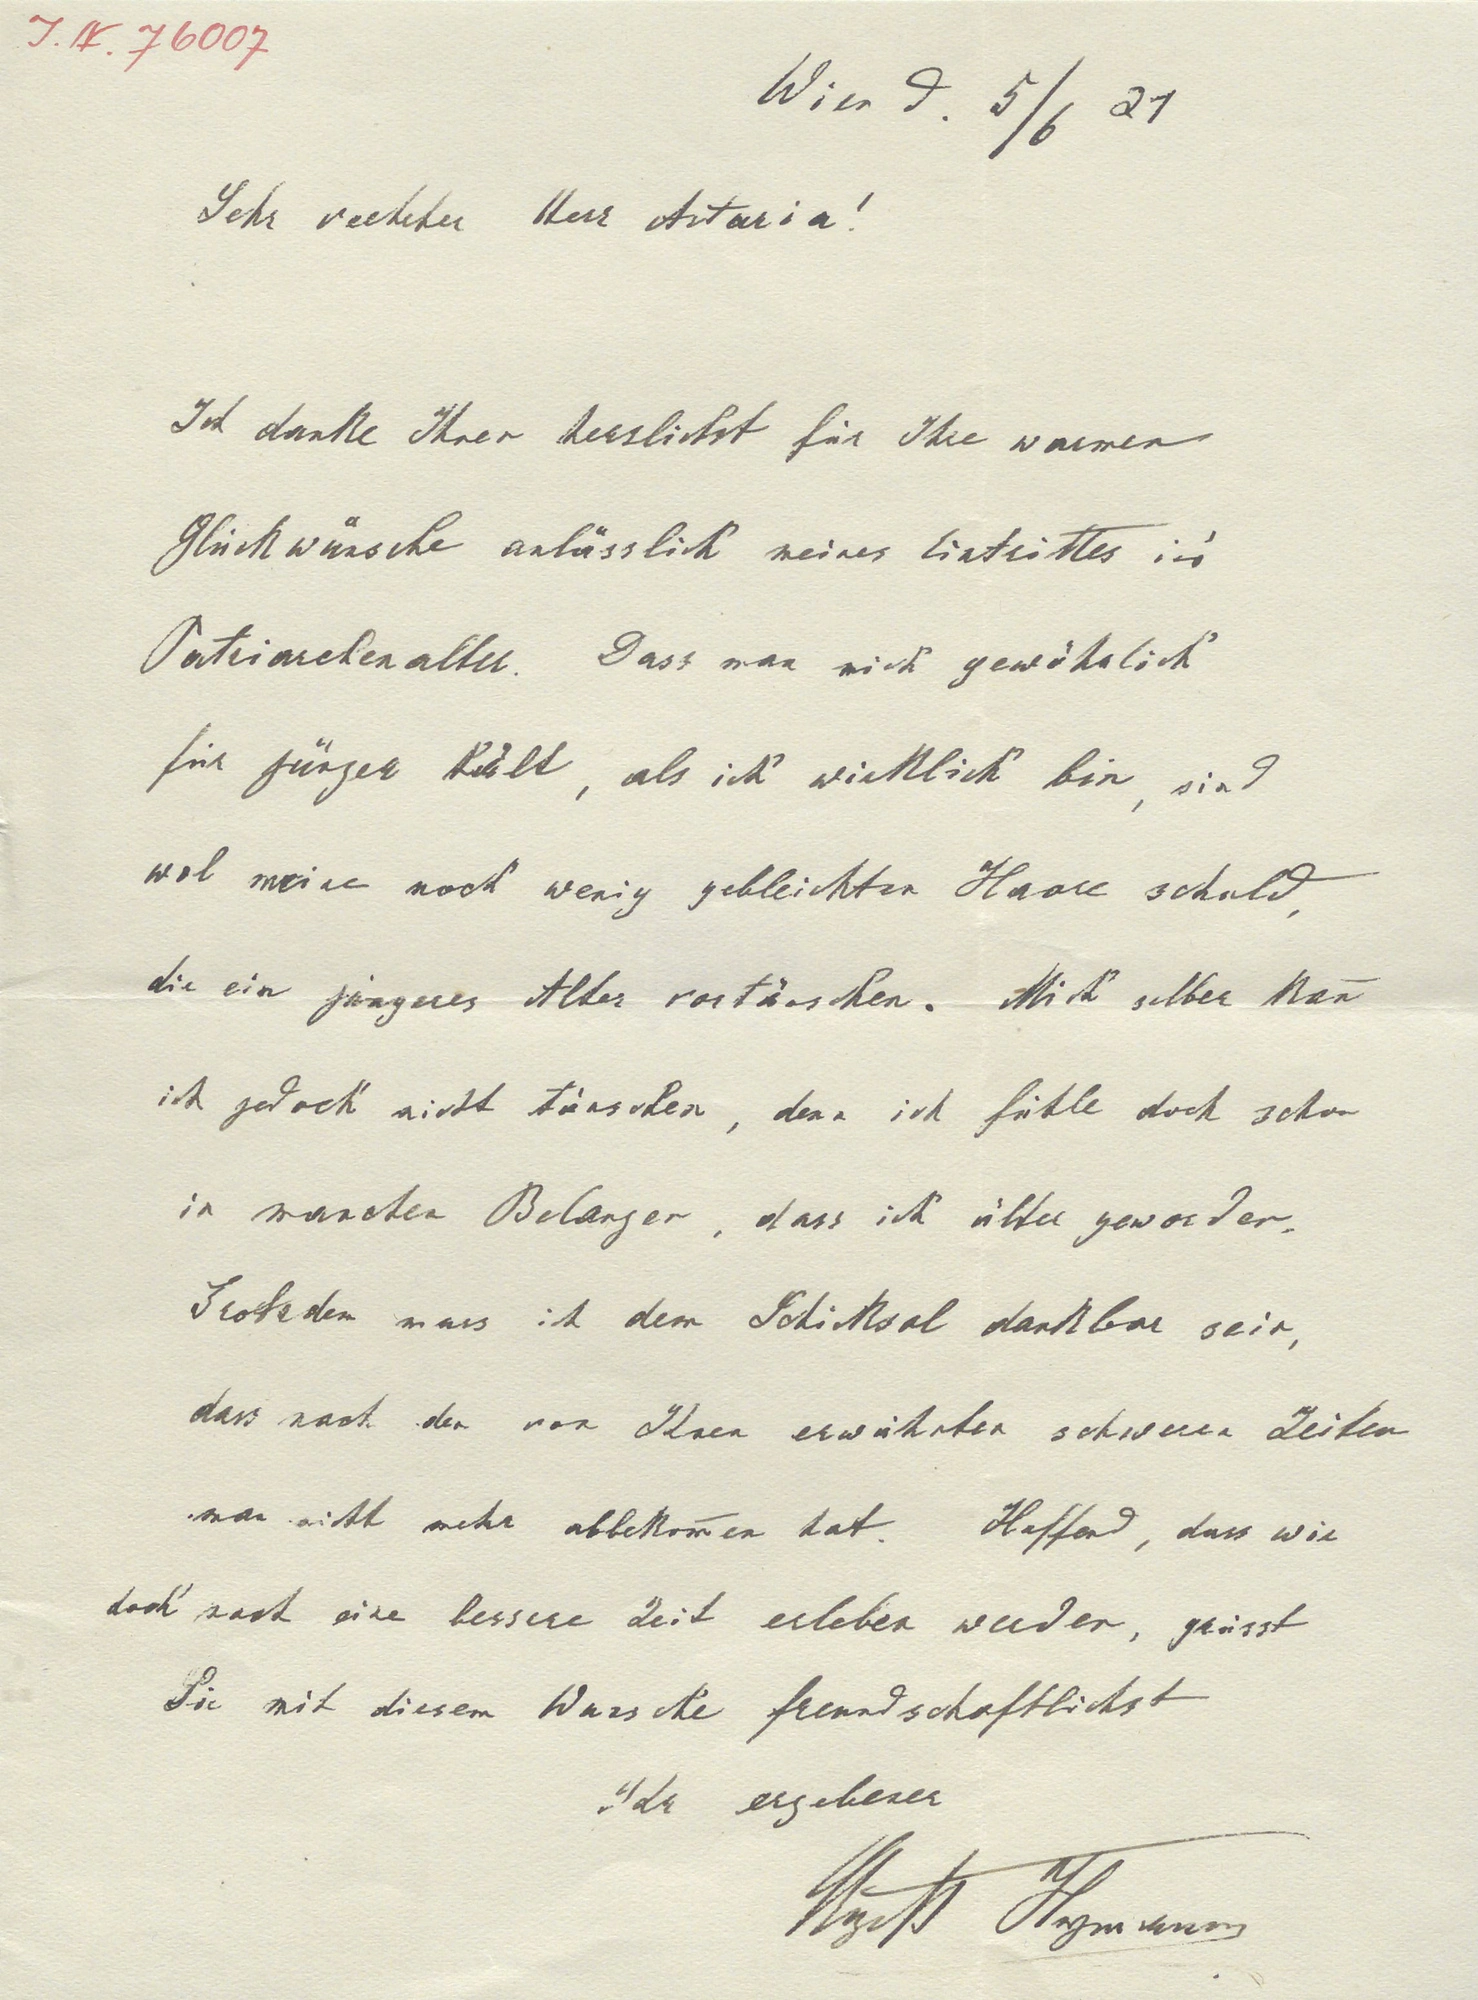 I. N. 76007
Wien d. 5/6 21
Sehr verehrter Herr Artaria!
Ich danke Ihnen herzlichst für Ihre warmen
Glückwünsche anlässlich meines Eintrittes in's
Patriarchenalter. Dass man mich gewöhnlich
für jünger hält, als ich wirklich bin, sind
wol meine noch wenig gebleichten Haare schuld,
die ein jüngeres Alter vortäuschen. Mich selber kan̄
ich jedoch nicht täuschen, denn ich fühle doch schon
in manchen Belangen, dass ich älter geworden.
Trotzdem muss ich dem Schicksal dankbar sein,
dass nach den von Ihnen erwähnten schweren Zeiten
man nicht mehr abbekom̄en hat. Hoffend, dass wir
doch noch eine bessere Zeit erleben werden, grüsst
Sie mit diesem Wunsche freundschaftlichst
Ihr ergebener